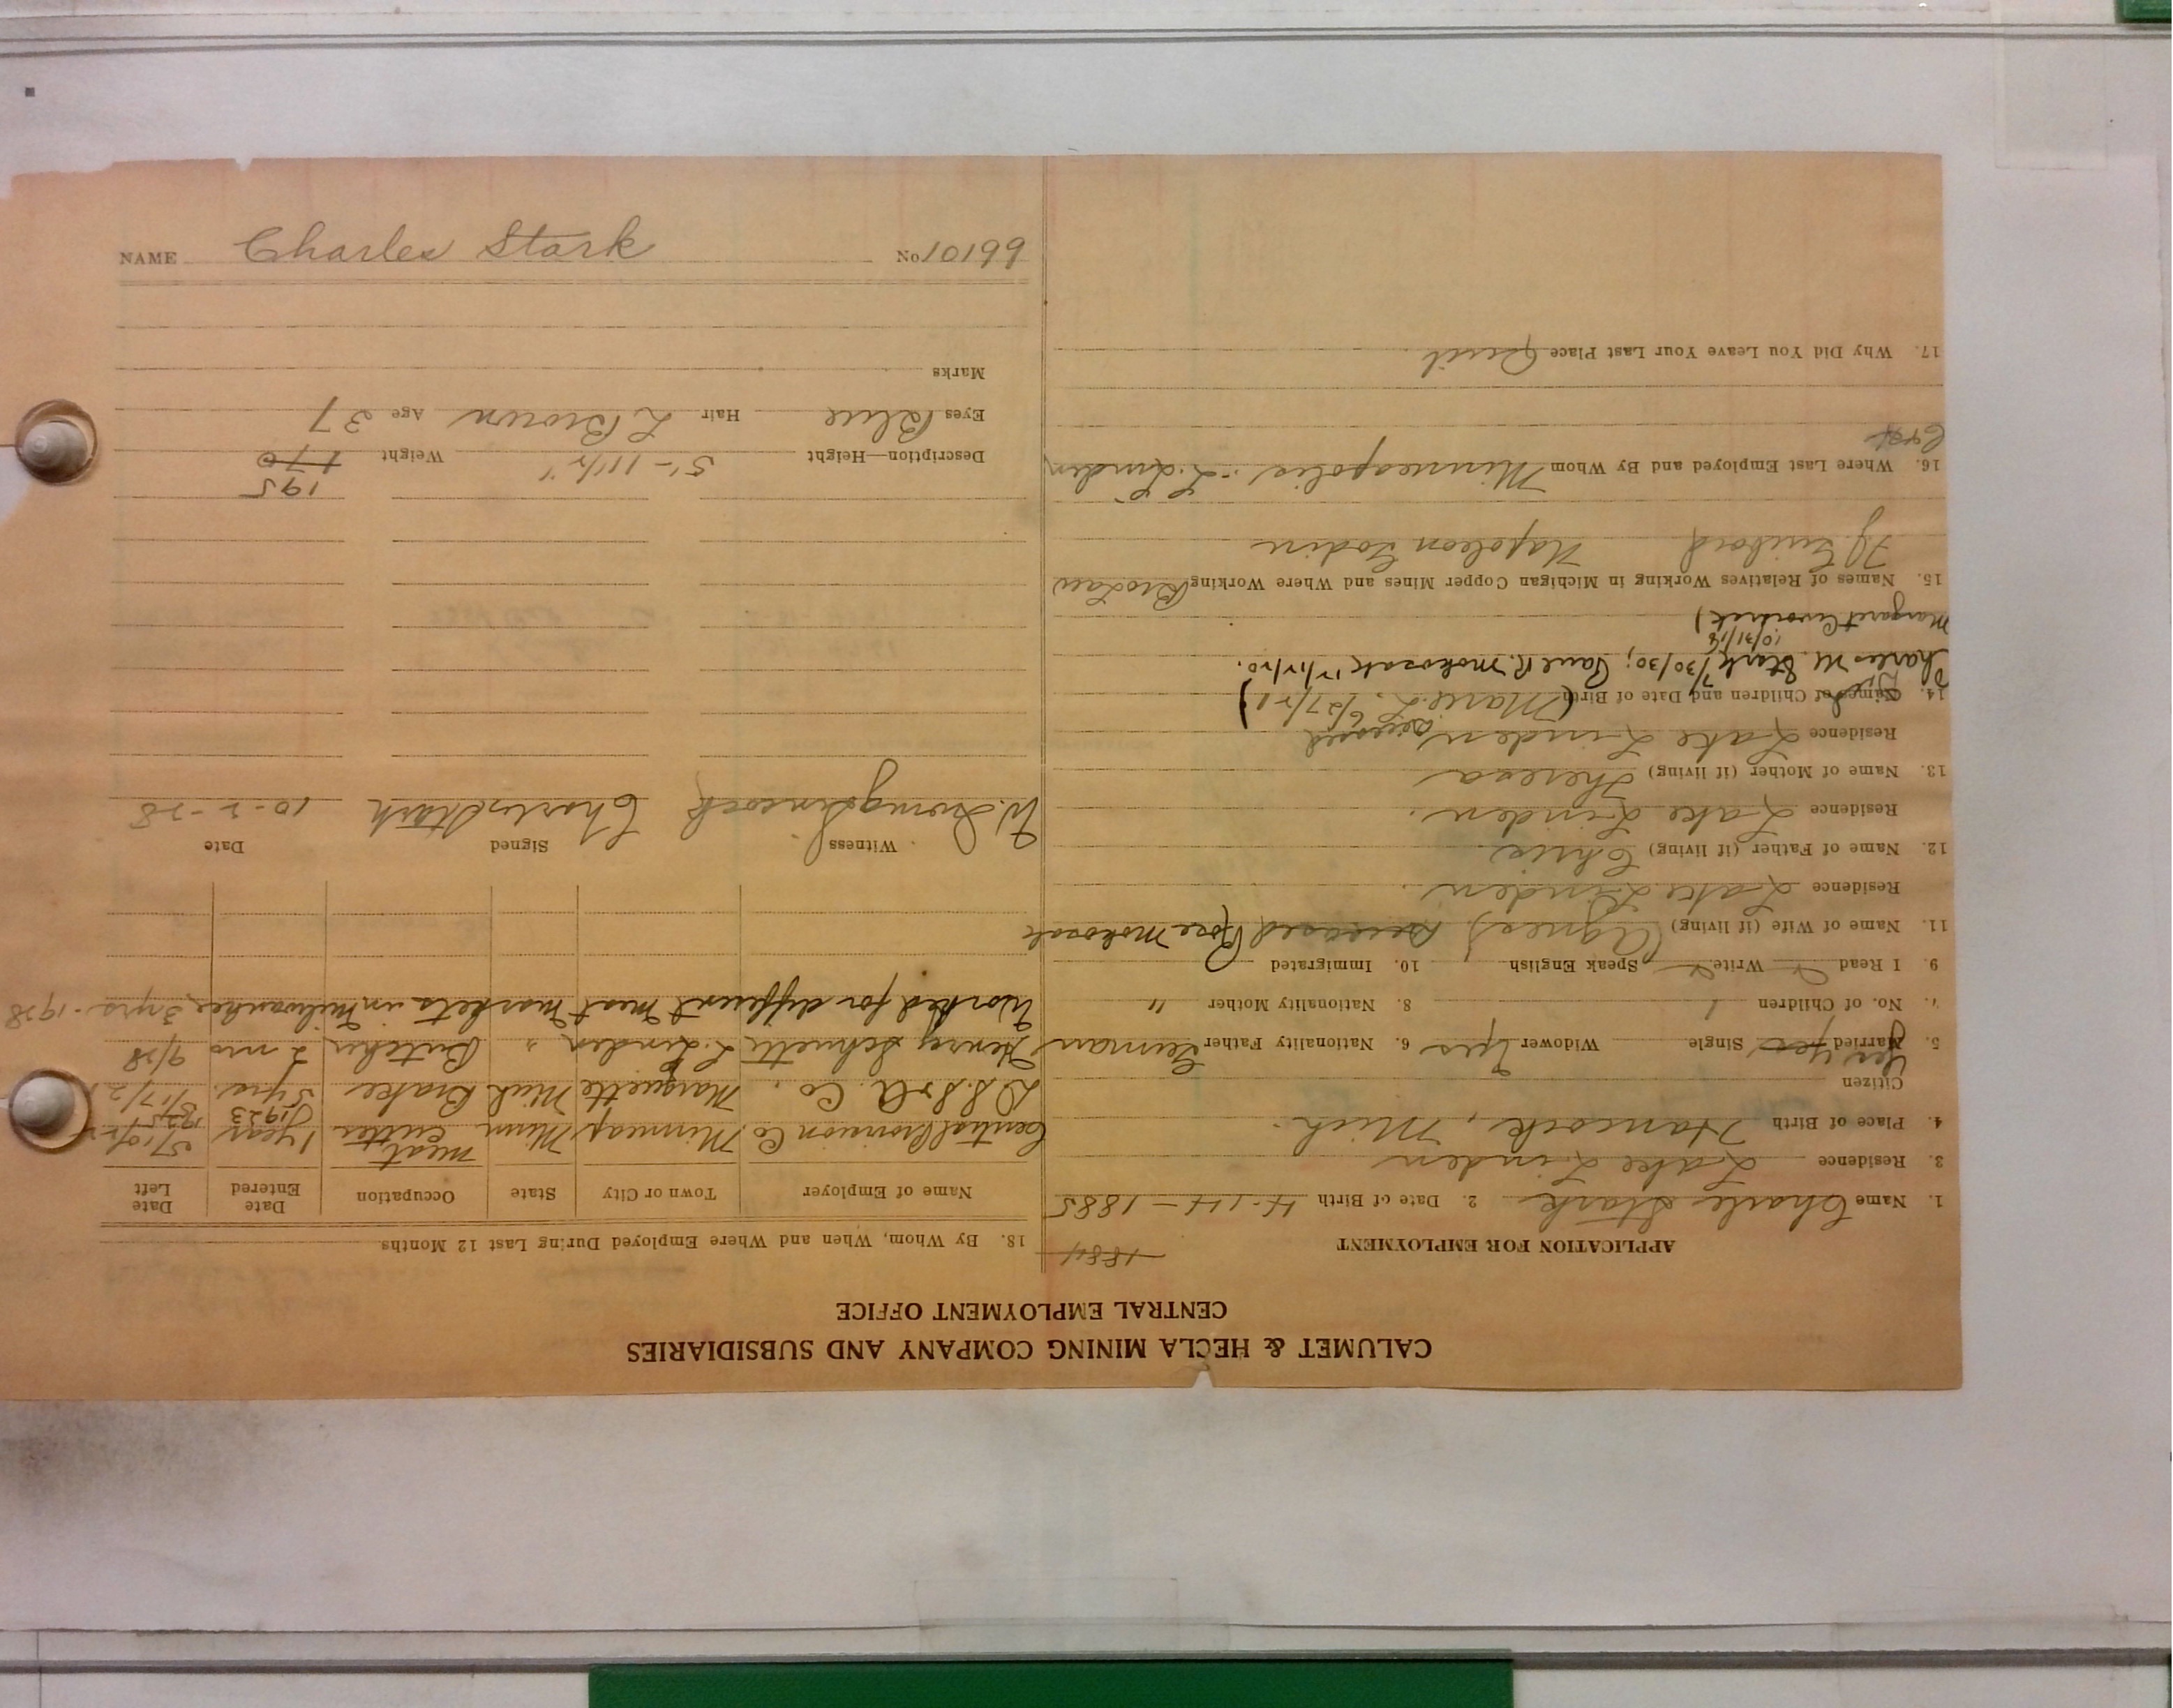 CALUMET & HECLA MINING COMPANY AND SUBSIDIARIES
CENTRAL EMPLOYMENT OFFICE
APPLICATION FOR EMPLOYMENT
1884
1. Name Charles Stark 2. Date of Birth 4-14-1885
3. Residence Lake Linden
4. Place of Birth Hancock, Mich.
Citizen
Yes
5. Married Yes Single Widower Yes 6. Nationality Father German
7. No. of Children 1 8. Nationality Mother "
9. I Read ✓ Write ✓ Speak English 10. Immigrated
11. Name of Wife (if living) (Agnes) Deceased Rose Mokosak
Residence Lake Linden
12. Name of Father (if living) Chris
Residence Lake Linden
13. Name of Mother (if living) Theresa
Residence Lake Linden deceased
14. Names of Children and Date of Birth (Marie L. 6/27/21)
Charles M. Stark 7/30/30; Paul R. Mokosak 12/12/20.
10/31/18
Margaret
15. Names of Relatives Working in Michigan Copper Mines and Where Working Bro Law
Napoleon Godin
16. Where Last Employed and By Whom Minneapolis - L. Linden
17. Why Did You Leave Your Last Place Quit
18. By Whom, When and Where Employed During Last 12 Months
Name of Employer Town or City State Occupation Date Entered Date Left
Central Provision Co Minneap Minn meat cutter 1 year
D.S.S. & A. Co. Marquette Mich Brake 5 yrs 1923
Henry Schuette L. Linden " Butcher 2 mo 9/28
Worked for different meat markets in Milwaukee 3 yrs. - 1928
Witness Signed Date
W. Charles Stark 10-2-28
195
Description—Height 5'-11 1/2" Weight 170
Eyes Blue Hair L Brown Age 37
Marks
NAME Charles Stark No 10199